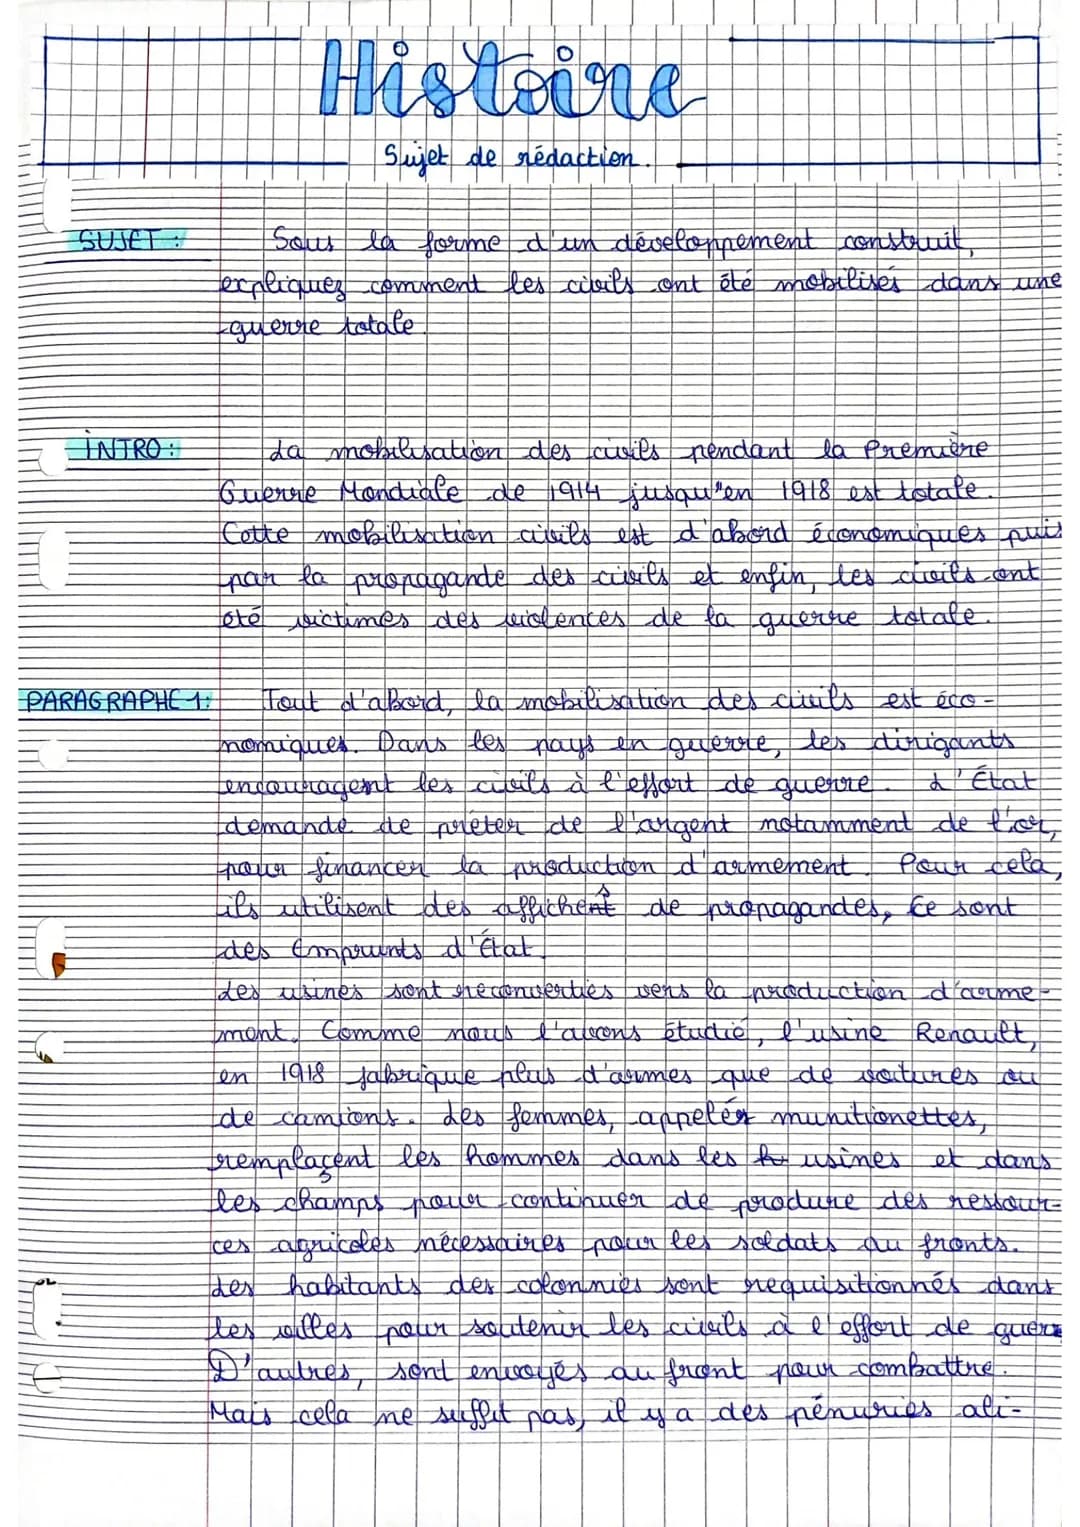 Histoire
Sujet de rédaction.
SUJET : Sous la forme d'un développement construit,
expliquez comment les civils ont été mobilisés dans une
guerre totale.
INTRO : La mobilisation des civils pendant la Première
Guerre Mondiale de 1914 jusqu'en 1918 est totale.
Cette mobilisation civils est d'abord économiques puis
par la propagande des civils et enfin, les civils ont
été victimes des violences de la guerre totale.
PARAGRAPHE 1: Tout d'abord, la mobilisation des civils est éco-
nomiques. Dans les pays en guerre, les dirigants
encouragent les civils à l'effort de guerre. L'État
demande de prêter de l'argent notamment de l'or,
pour financer la production d'armement. Pour cela,
ils utilisent des affiches de propagandes, ce sont
des Emprunts d'État.
Les usines sont reconverties vers la production d'arme-
ment. Comme nous l'avons étudié, l'usine Renault,
en 1918 fabrique plus d'armes que de voitures ou
de camions. Les femmes, appelés munitionettes,
remplaçent les hommes dans les usines et dans
les champs pour continuer de produre des ressour-
ces agricoles nécessaires pour les soldats au fronts.
Les habitants des colonnies sont requisitionnés dans
les villes pour soutenir les civils à l'effort de guerre
D'autres, sont envoyés au front pour combattre.
Mais cela ne suffit pas, il y a des pénuries ali-